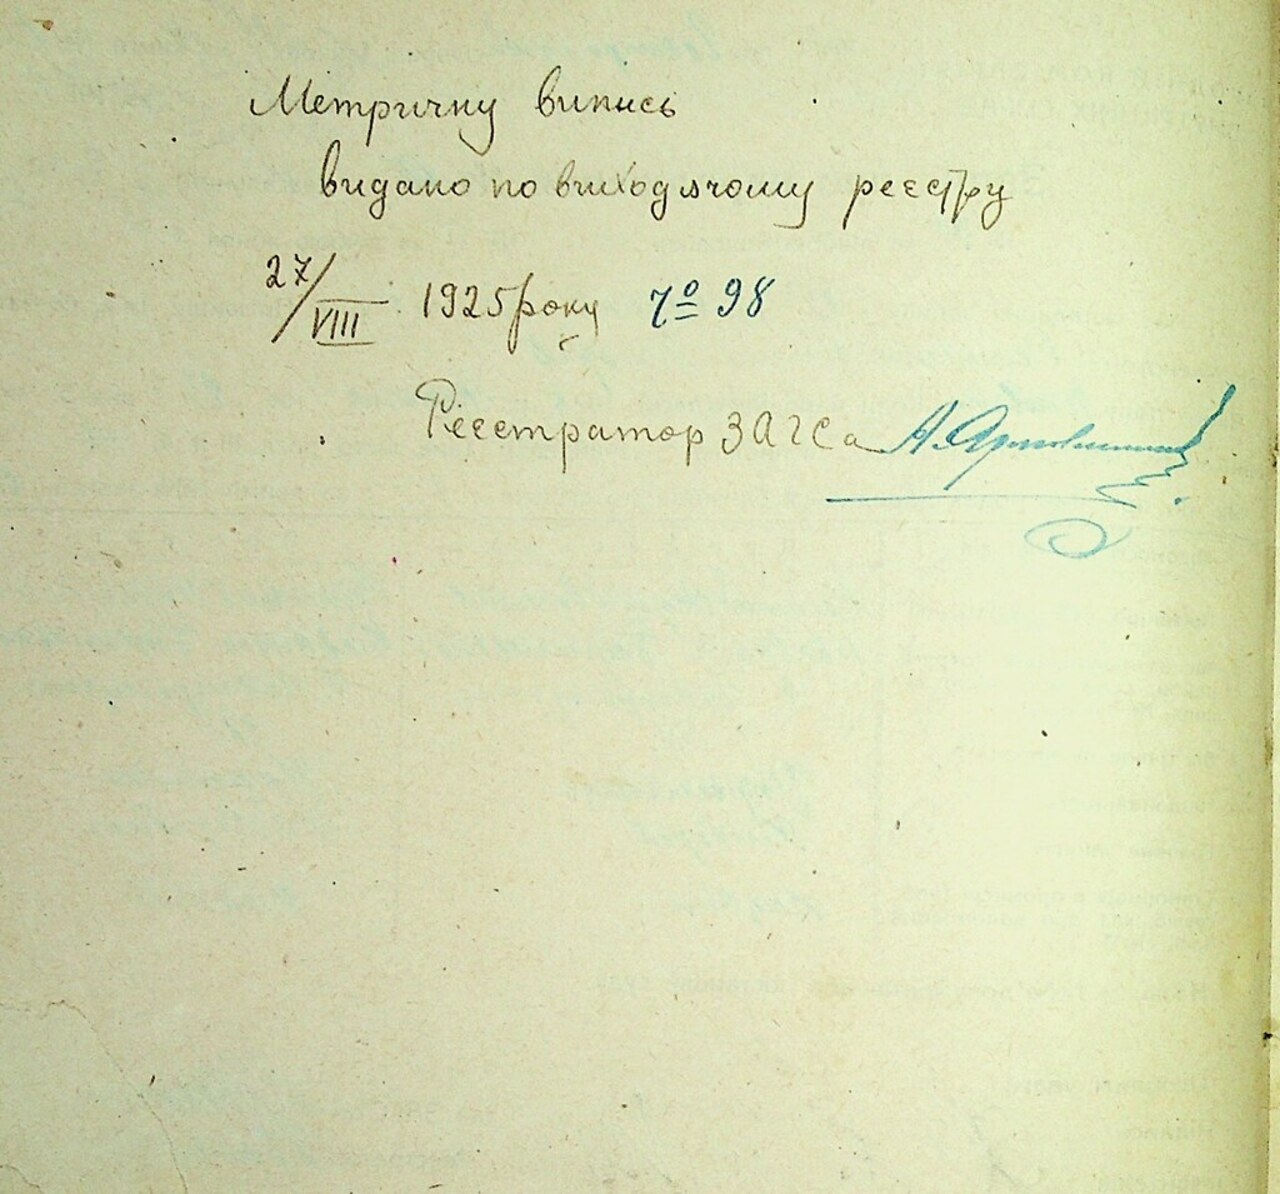 Метричну випись
видано по виходячому реєстру
27/VIII 1925 року № 98
Реєстратор ЗАГСа А.